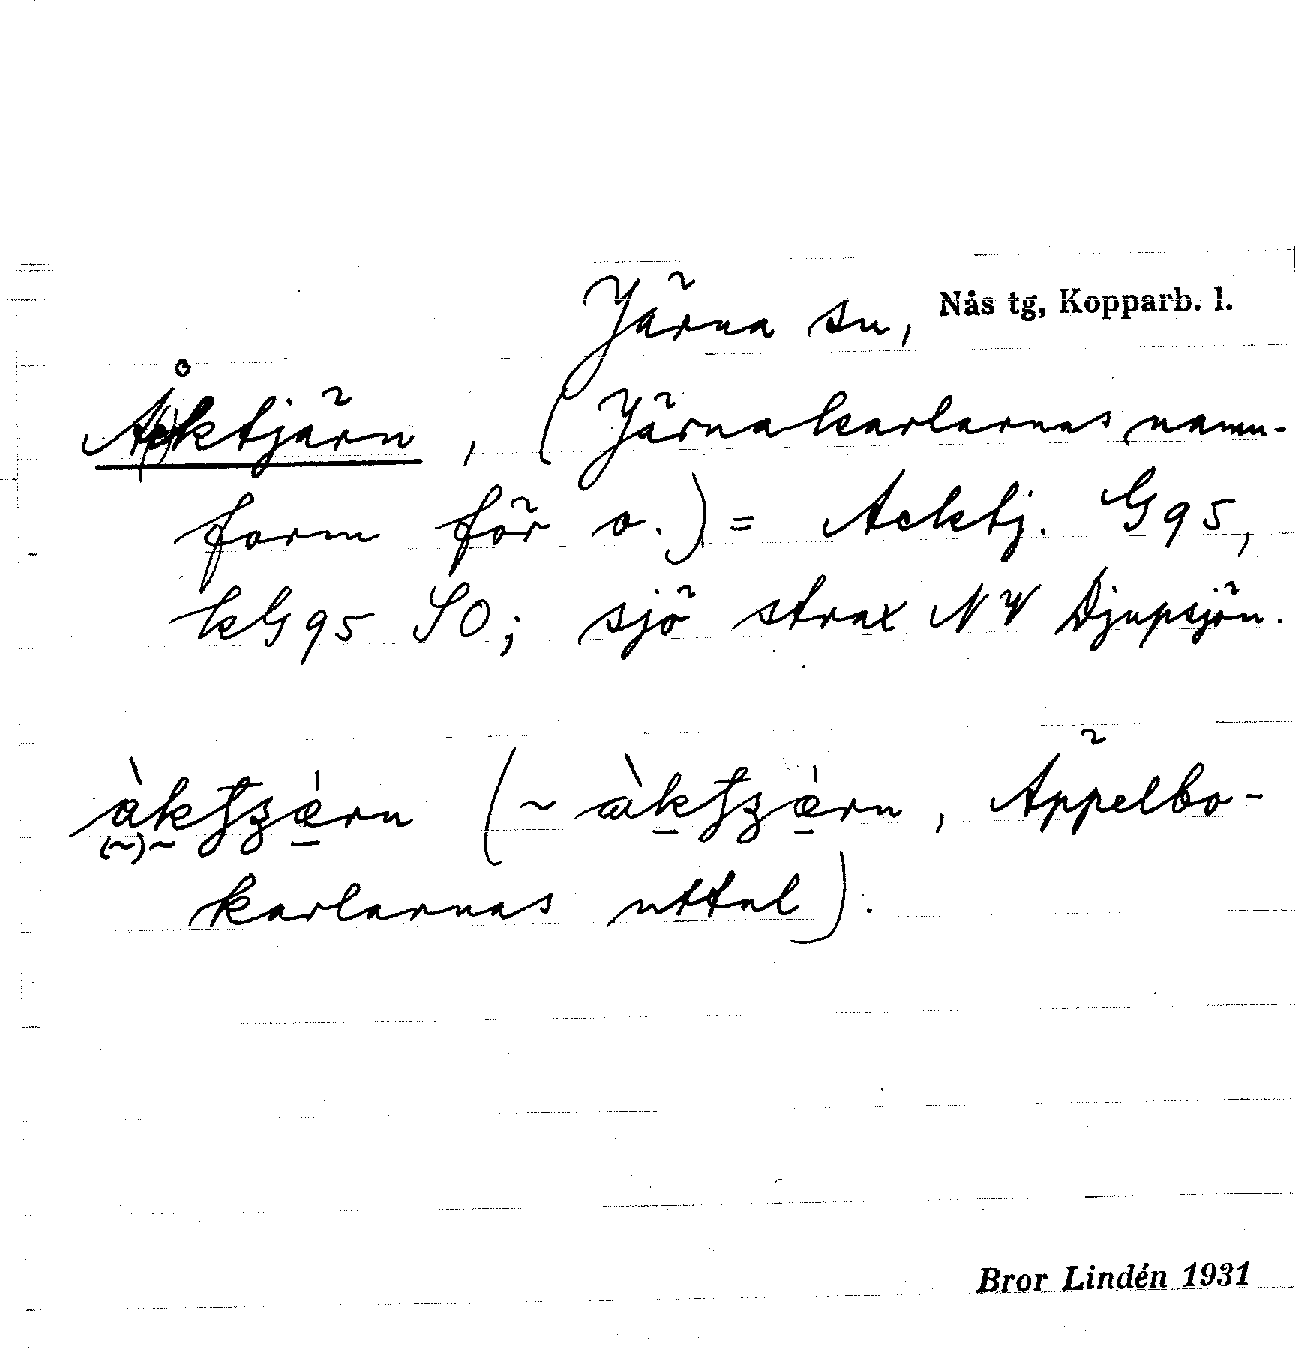 Järna sn, Nås tg, Kopparb. l.
Åcktjärn, (Järnakarlarnas namn-
form för o.) = Acktj. G95,
kG95 SO; sjö strax NV Djupsjön.
(~ , Äppelbo-
karlarnas uttal).
Bror Lindén 1931